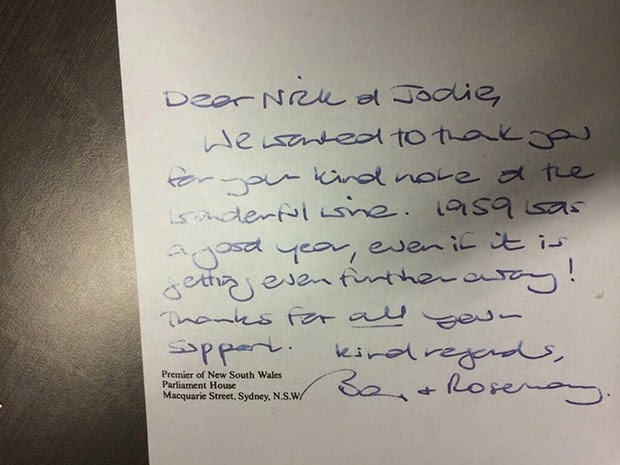 Dear Nick & Jodie,
We wanted to thank you
for your kind note & the
wonderful wine. 1959 was
a good year, even if it is
getting even further away!
Thanks for all your
support. Kind regards,
Premier of New South Wales
Parliament House
Macquarie Street, Sydney, N.S.W.
+ Rosemary.